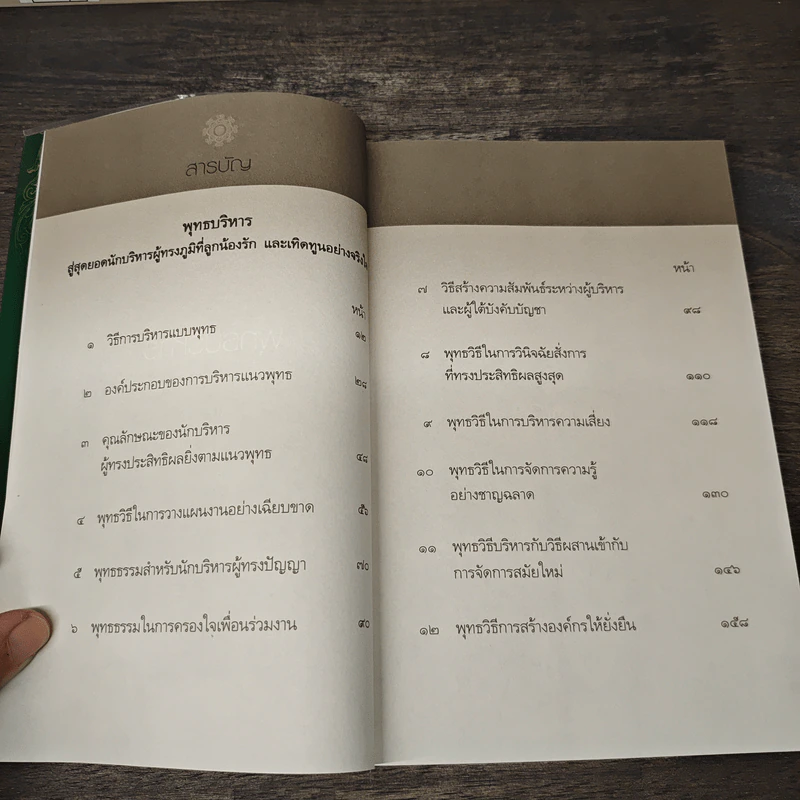 สารบัญ
พุทธบริหาร
สู่สุดยอดนักบริหารผู้ทรงภูมิที่ลูกน้องรัก และเทิดทูนอย่างจริงใ
หน้า
๑ วิธีการบริหารแบบพุทธ ๑๒
๒ องค์ประกอบของการบริหารแนวพุทธ ๒๘
๓ คุณลักษณะของนักบริหาร
ผู้ทรงประสิทธิผลยิ่งตามแนวพุทธ ๔๘
๔ พุทธวิธีในการวางแผนงานอย่างเฉียบขาด ๕๖
๕ พุทธธรรมสำหรับนักบริหารผู้ทรงปัญญา ๗๐
๖ พุทธธรรมในการครองใจเพื่อนร่วมงาน ๙๐
หน้า
๗ วิธีสร้างความสัมพันธ์ระหว่างผู้บริหาร
และผู้ใต้บังคับบัญชา ๙๘
๘ พุทธวิธีในการวินิจฉัยสั่งการ
ที่ทรงประสิทธิผลสูงสุด ๑๑๐
๙ พุทธวิธีในการบริหารความเสี่ยง ๑๑๘
๑๐ พุทธวิธีในการจัดการความรู้
อย่างชาญฉลาด ๑๓๐
๑๑ พุทธวิธีบริหารกับวิธีผสานเข้ากับ
การจัดการสมัยใหม่ ๑๔๖
๑๒ พุทธวิธีการสร้างองค์กรให้ยั่งยืน ๑๕๘